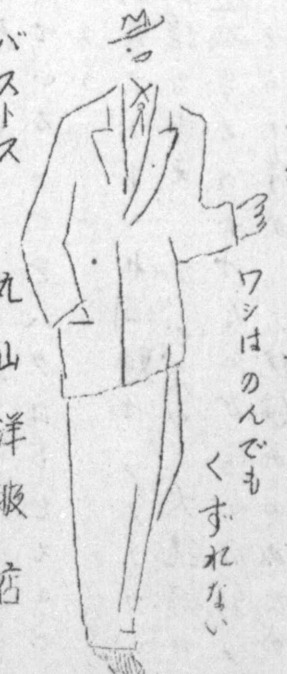 ワシはのんでも
くずれない
バストス 丸山洋服店